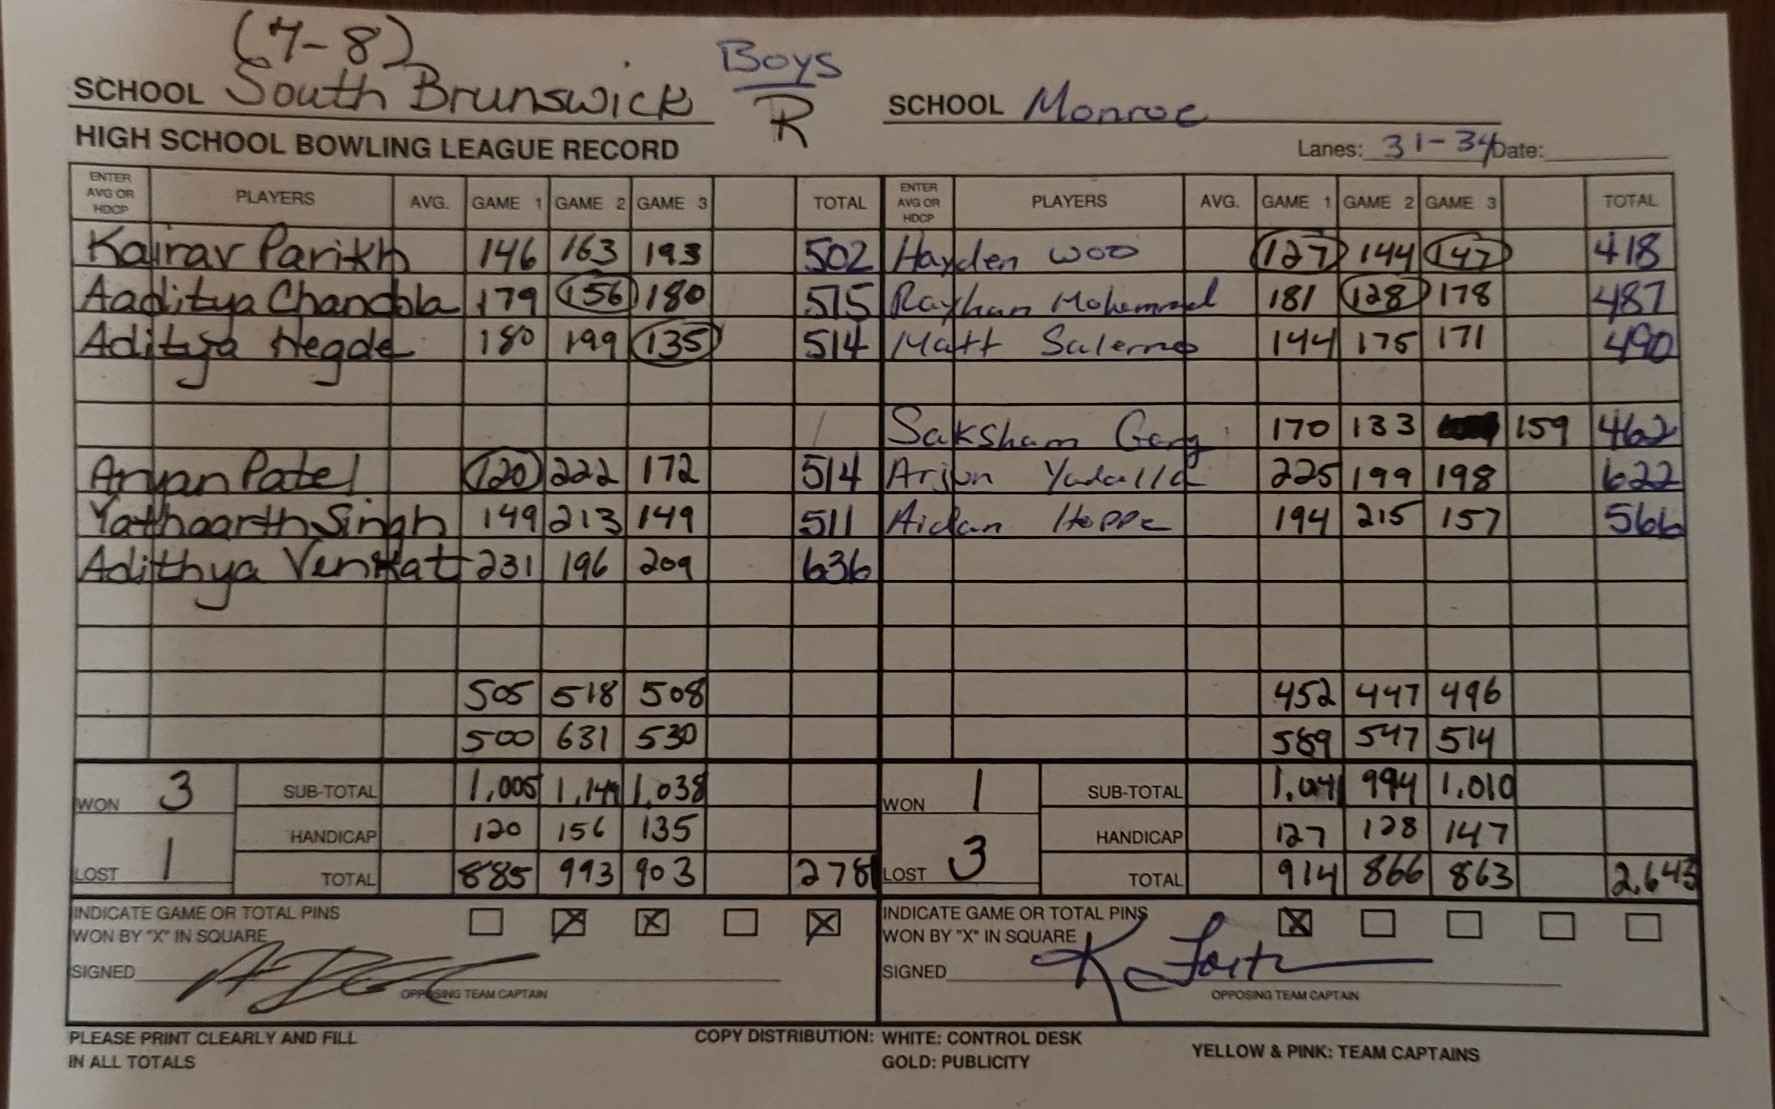 (7-8)
SCHOOL South Brunswick Boys SCHOOL Monroe
R
HIGH SCHOOL BOWLING LEAGUE RECORD Lanes: 31-34 Date:
ENTER AVG OR HDCP PLAYERS AVG. GAME 1 GAME 2 GAME 3 TOTAL ENTER AVG OR HDCP PLAYERS AVG. GAME 1 GAME 2 GAME 3 TOTAL
Kairav Parikh 146 163 193 502 Hayden Woo 127 144 147 418
Aaditya Chandola 179 156 180 515 Rayhan Mohammad 181 128 178 487
Aditya Hegde 180 199 135 514 Matt Salerno 144 175 171 490
Saksham Garg 170 133 159 462
Aryan Patel 120 222 172 514 Arjun 225 199 198 622
Yathaarth Singh 149 213 149 511 Aidan Hoppe 194 215 157 566
Adithya Venkat 231 196 209 636
505 518 508 452 447 496
500 631 530 589 547 514
WON 3 SUB-TOTAL 1,005 1,149 1,038 WON 1 SUB-TOTAL 1,041 994 1,010
HANDICAP 120 156 135 HANDICAP 127 128 147
LOST 1 TOTAL 885 993 903 2781 LOST 3 TOTAL 914 866 863 2,643
INDICATE GAME OR TOTAL PINS X X X INDICATE GAME OR TOTAL PINS X
WON BY "X" IN SQUARE WON BY "X" IN SQUARE
SIGNED SIGNED K
OPPOSING TEAM CAPTAIN OPPOSING TEAM CAPTAIN
PLEASE PRINT CLEARLY AND FILL COPY DISTRIBUTION: WHITE: CONTROL DESK YELLOW & PINK: TEAM CAPTAINS
IN ALL TOTALS GOLD: PUBLICITY